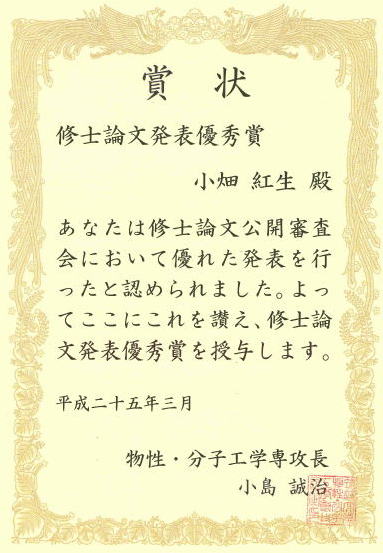 賞状
修士論文発表優秀賞
小畑 紅生 殿
あなたは修士論文公開審査
会において優れた発表を行
ったと認められました。よっ
てここにこれを讃え、修士論
文発表優秀賞を授与します。
平成二十五年三月
物性・分子工学専攻長
小島 誠治